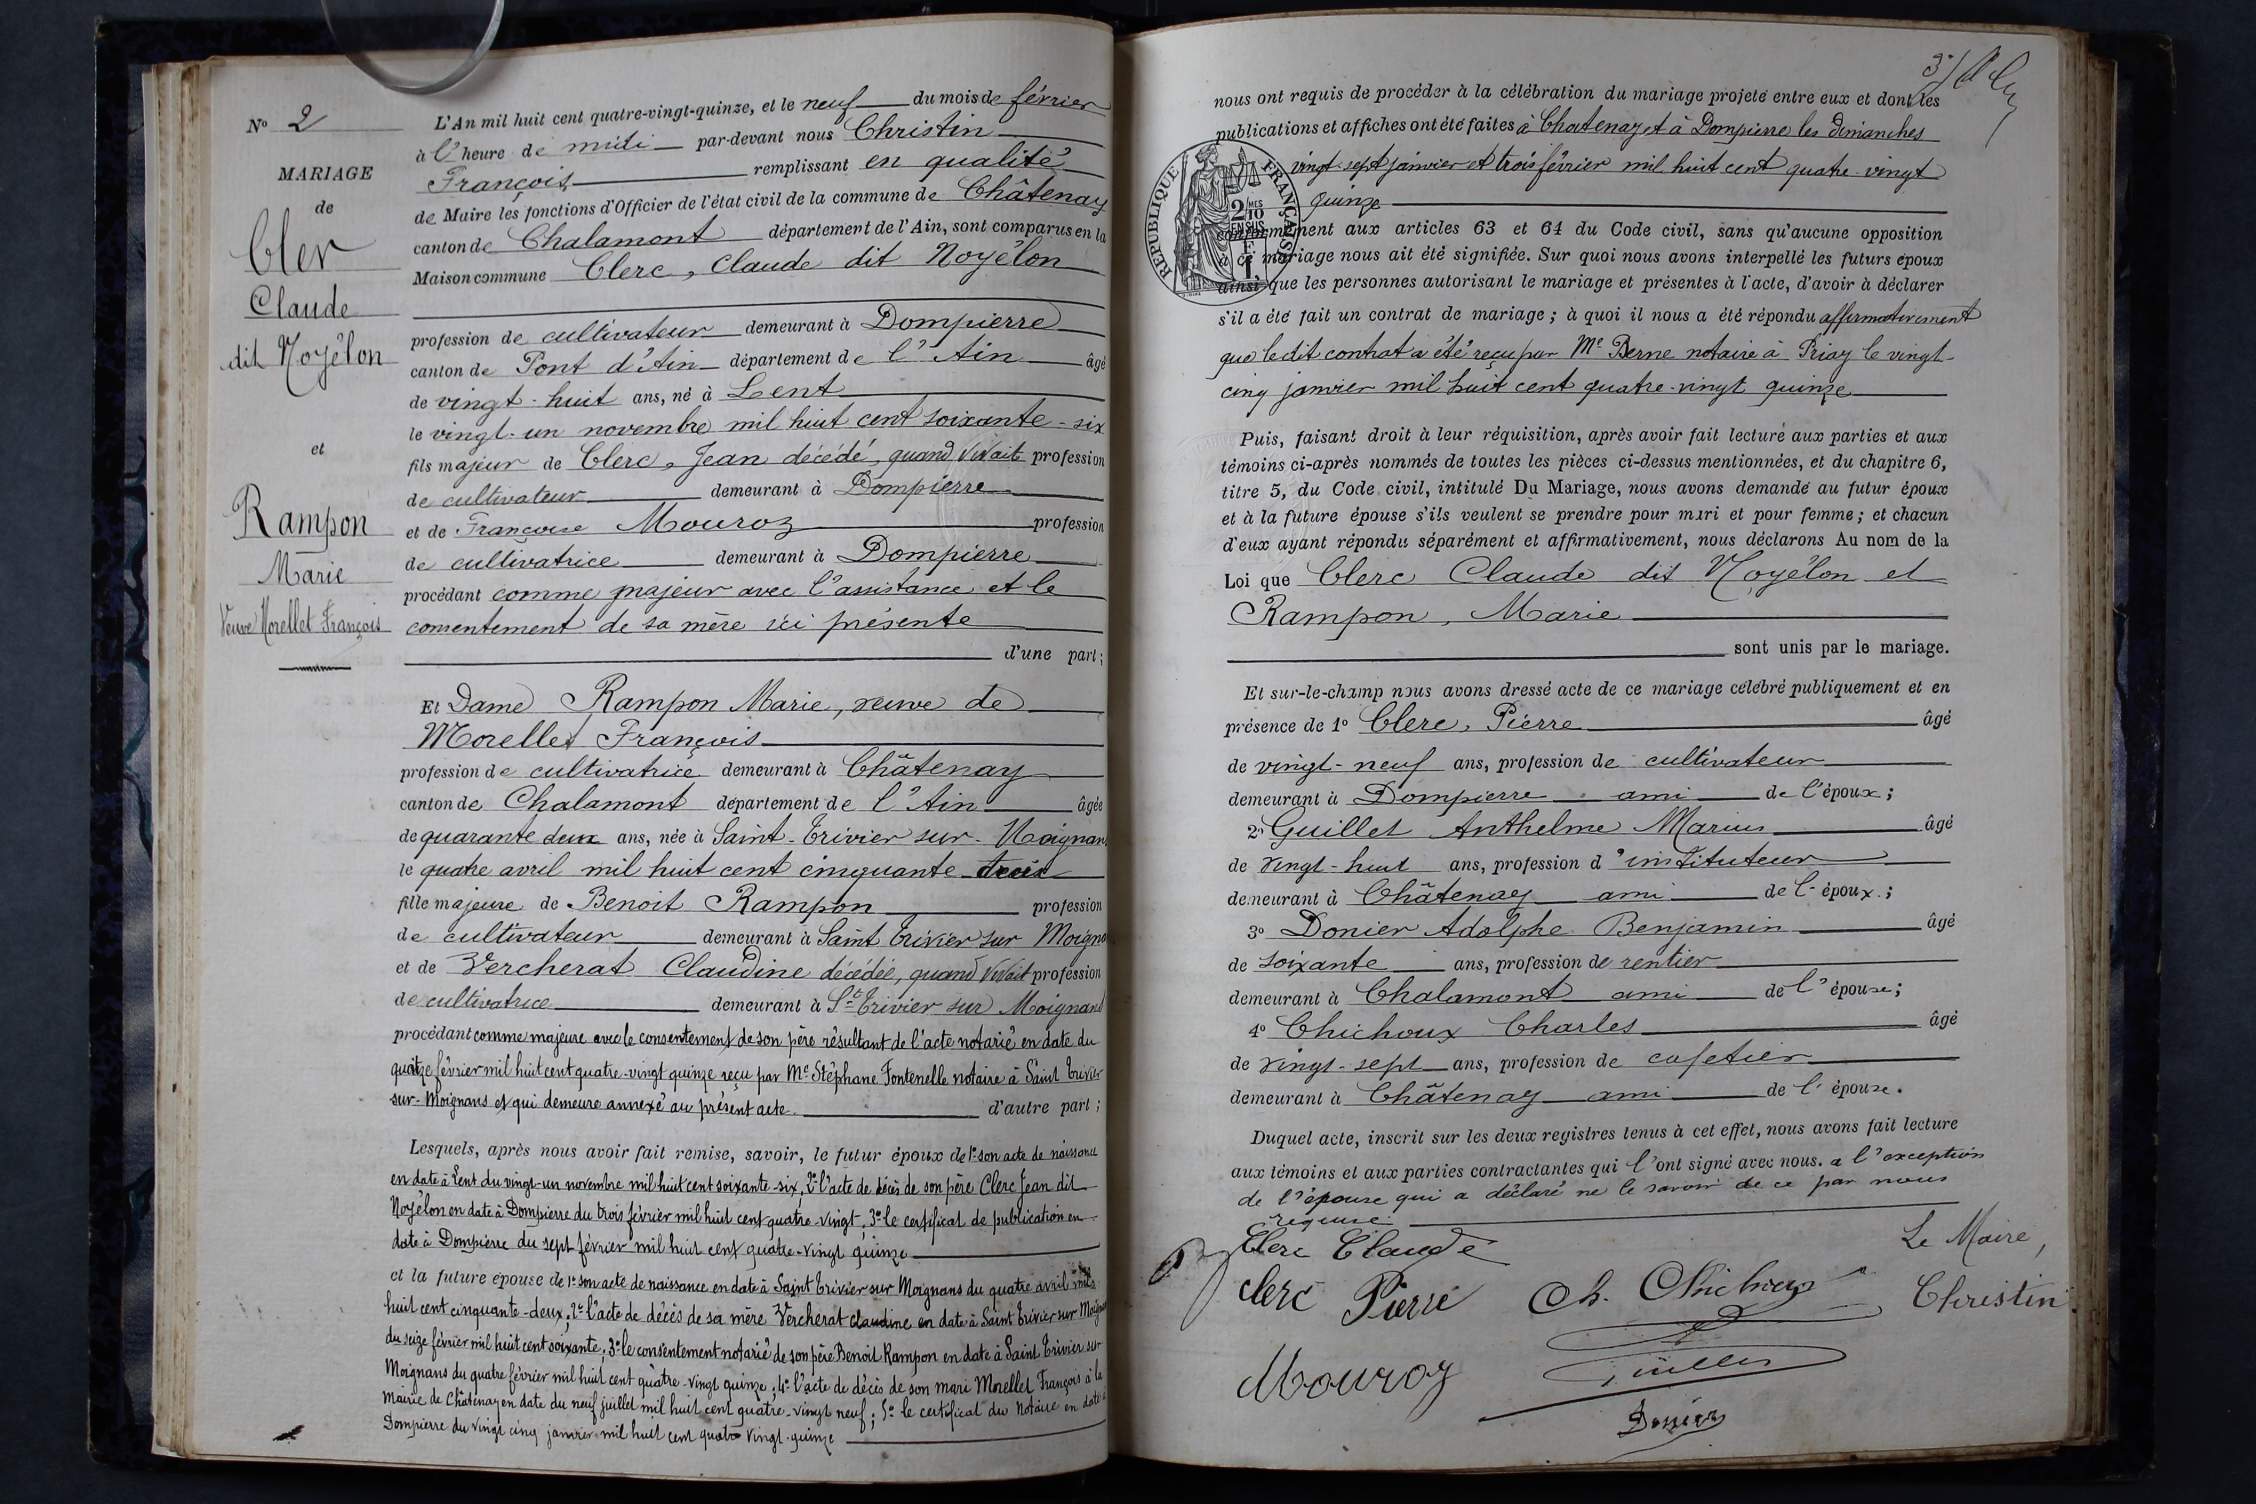 N° 2
MARIAGE
de
Cler
Claude
dit Noyélon
et
Rampon
Marie
Veuve Morellet François
L'An mil huit cent quatre-vingt-quinze, et le neuf du mois de février
à l'heure de midi par-devant nous Christin
François remplissant en qualité
de Maire les fonctions d'Officier de l'état civil de la commune de Châtenay
canton de Chalamont département de l'Ain, sont comparus en la
Maison commune Clerc, Claude dit Noyélon
profession de cultivateur demeurant à Dompierre
canton de Pont d'Ain département de l'Ain âgé
de vingt-huit ans, né à Lent
le vingt-un novembre mil huit cent soixante-six
fils majeur de Clerc, Jean décédé, quand vivait profession
de cultivateur demeurant à Dompierre
et de Françoise Mouroz profession
de cultivatrice demeurant à Dompierre
procédant comme majeur avec l'assistance et le
consentement de sa mère ici présente
d'une part;
Et Dame Rampon Marie, veuve de
Morellet François
profession de cultivatrice demeurant à Châtenay
canton de Chalamont département de l'Ain âgée
de quarante deux ans, née à Saint-Trivier sur-Moignans
le quatre avril mil huit cent cinquante trois
fille majeure de Benoit Rampon profession
de cultivateur demeurant à Saint Trivier sur Moigna
et de Vercherat Claudine décédée, quand vivait profession
de cultivatrice demeurant à St Trivier sur Moignans
procédant comme majeure avec le consentement de son père résultant de l'acte notarié en date du
février mil huit cent quatre-vingt quinze reçu par Me Stéphane Fontenelle notaire à Saint Trivier
sur-Moignans et qui demeure annexé au présent acte d'autre part;
Lesquels, après nous avoir fait remise, savoir, le futur époux de 1° son acte de naissance
en date à Lent du vingt-un novembre mil huit cent soixante-six, 2° l'acte de décès de son père Clerc Jean dit
Noyélon en date à Dompierre du trois février mil huit cent quatre-vingt, 3° le certificat de publication en
date à Dompierre du sept février mil huit cent quatre-vingt quinze
et la future épouse de 1° son acte de naissance en date à Saint Trivier sur Moignans du quatre avril mil
huit cent cinquante-deux; 2° l'acte de décès de sa mère Vercherat Claudine en date à Saint Trivier sur Moignans
du seize février mil huit cent soixante; 3° le consentement notarié de son père Benoit Rampon en date à Saint Trivier sur
Moignans du quatre février mil huit cent quatre-vingt quinze; 4° l'acte de décès de son mari Morellet François à la
mairie de Châtenay en date du neuf juillet mil huit cent quatre-vingt neuf; 5° le certificat du notaire en date à
Dompierre du vingt cinq janvier mil huit cent quatre vingt-quinze
3
nous ont requis de procéder à la célébration du mariage projeté entre eux et dont les
publications et affiches ont été faites à Chatenay et à Dompierre les dimanches
vingt-sept janvier et trois février mil huit cent quatre-vingt
quinze
RÉPUBLIQUE FRANÇAISE
2/10 EN SUS
conformément aux articles 63 et 64 du Code civil, sans qu'aucune opposition
à ce mariage nous ait été signifiée. Sur quoi nous avons interpellé les futurs époux
ainsi que les personnes autorisant le mariage et présentes à l'acte, d'avoir à déclarer
s'il a été fait un contrat de mariage; à quoi il nous a été répondu affirmativement
que le dit contrat a été reçu par Me Berne notaire à Priay le vingt-
cinq janvier mil huit cent quatre-vingt quinze
Puis, faisant droit à leur réquisition, après avoir fait lecture aux parties et aux
témoins ci-après nommés de toutes les pièces ci-dessus mentionnées, et du chapitre 6,
titre 5, du Code civil, intitulé Du Mariage, nous avons demandé au futur époux
et à la future épouse s'ils veulent se prendre pour mari et pour femme; et chacun
d'eux ayant répondu séparément et affirmativement, nous déclarons Au nom de la
Loi que Clerc Claude dit Noyélon et
Rampon, Marie
sont unis par le mariage.
Et sur-le-champ nous avons dressé acte de ce mariage célébré publiquement et en
présence de 1° Clerc, Pierre âgé
de vingt-neuf ans, profession de cultivateur
demeurant à Dompierre ami de l'époux;
2° Guillet Anthelme Marius âgé
de vingt-huit ans, profession d'instituteur
demeurant à Châtenay ami de l'époux;
3° Donier Adolphe Benjamin âgé
de soixante ans, profession de rentier
demeurant à Chalamont ami de l'épouse;
4° Chichoux Charles âgé
de vingt-sept ans, profession de cafetier
demeurant à Châtenay ami de l'épouse.
Duquel acte, inscrit sur les deux registres tenus à cet effet, nous avons fait lecture
aux témoins et aux parties contractantes qui l'ont signé avec nous. a l'exception
de l'épouse qui a déclaré ne le savoir de ce par nous
requise
Clerc Claude
Le Maire,
Clerc Pierre Ch. Chichoux Christin
Mouroz Guillet
Donier